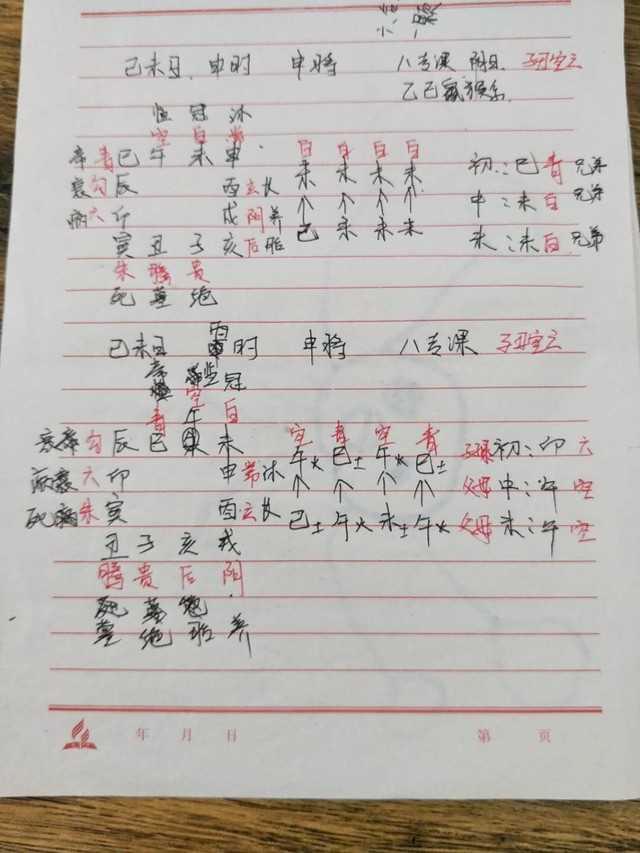 己未日、申时 申将 八专课 阴日 子丑空亡
空 白 常
青 巳 午 未 申
勾 辰 酉 玄 长
病 六 卯 戌 阴 养
寅 丑 子 亥 后 胎
朱 腾 贵
死 墓 绝
白 白 白 白
未 未 未 未
↑ ↑ ↑ ↑
己 未 未 未
初：巳 青 兄弟
中：未 白 兄弟
末：未 白 兄弟
己未日 酉时 申将 八专课 子丑空亡
青 空 白
衰 勾 辰 巳 午 未
六 卯 申 常 沐
死 病 朱 寅 酉 玄 长
丑 子 亥 戌
腾 贵 后 阴
死 墓 绝
墓 绝 胎 养
空 青 空 青
午火 巳土 午火 巳土
↑ ↑ ↑ ↑
己土 午火 未土 午火
初：卯 六
父母 中：午 空
父母 末：午 空
年 月 日 第 页